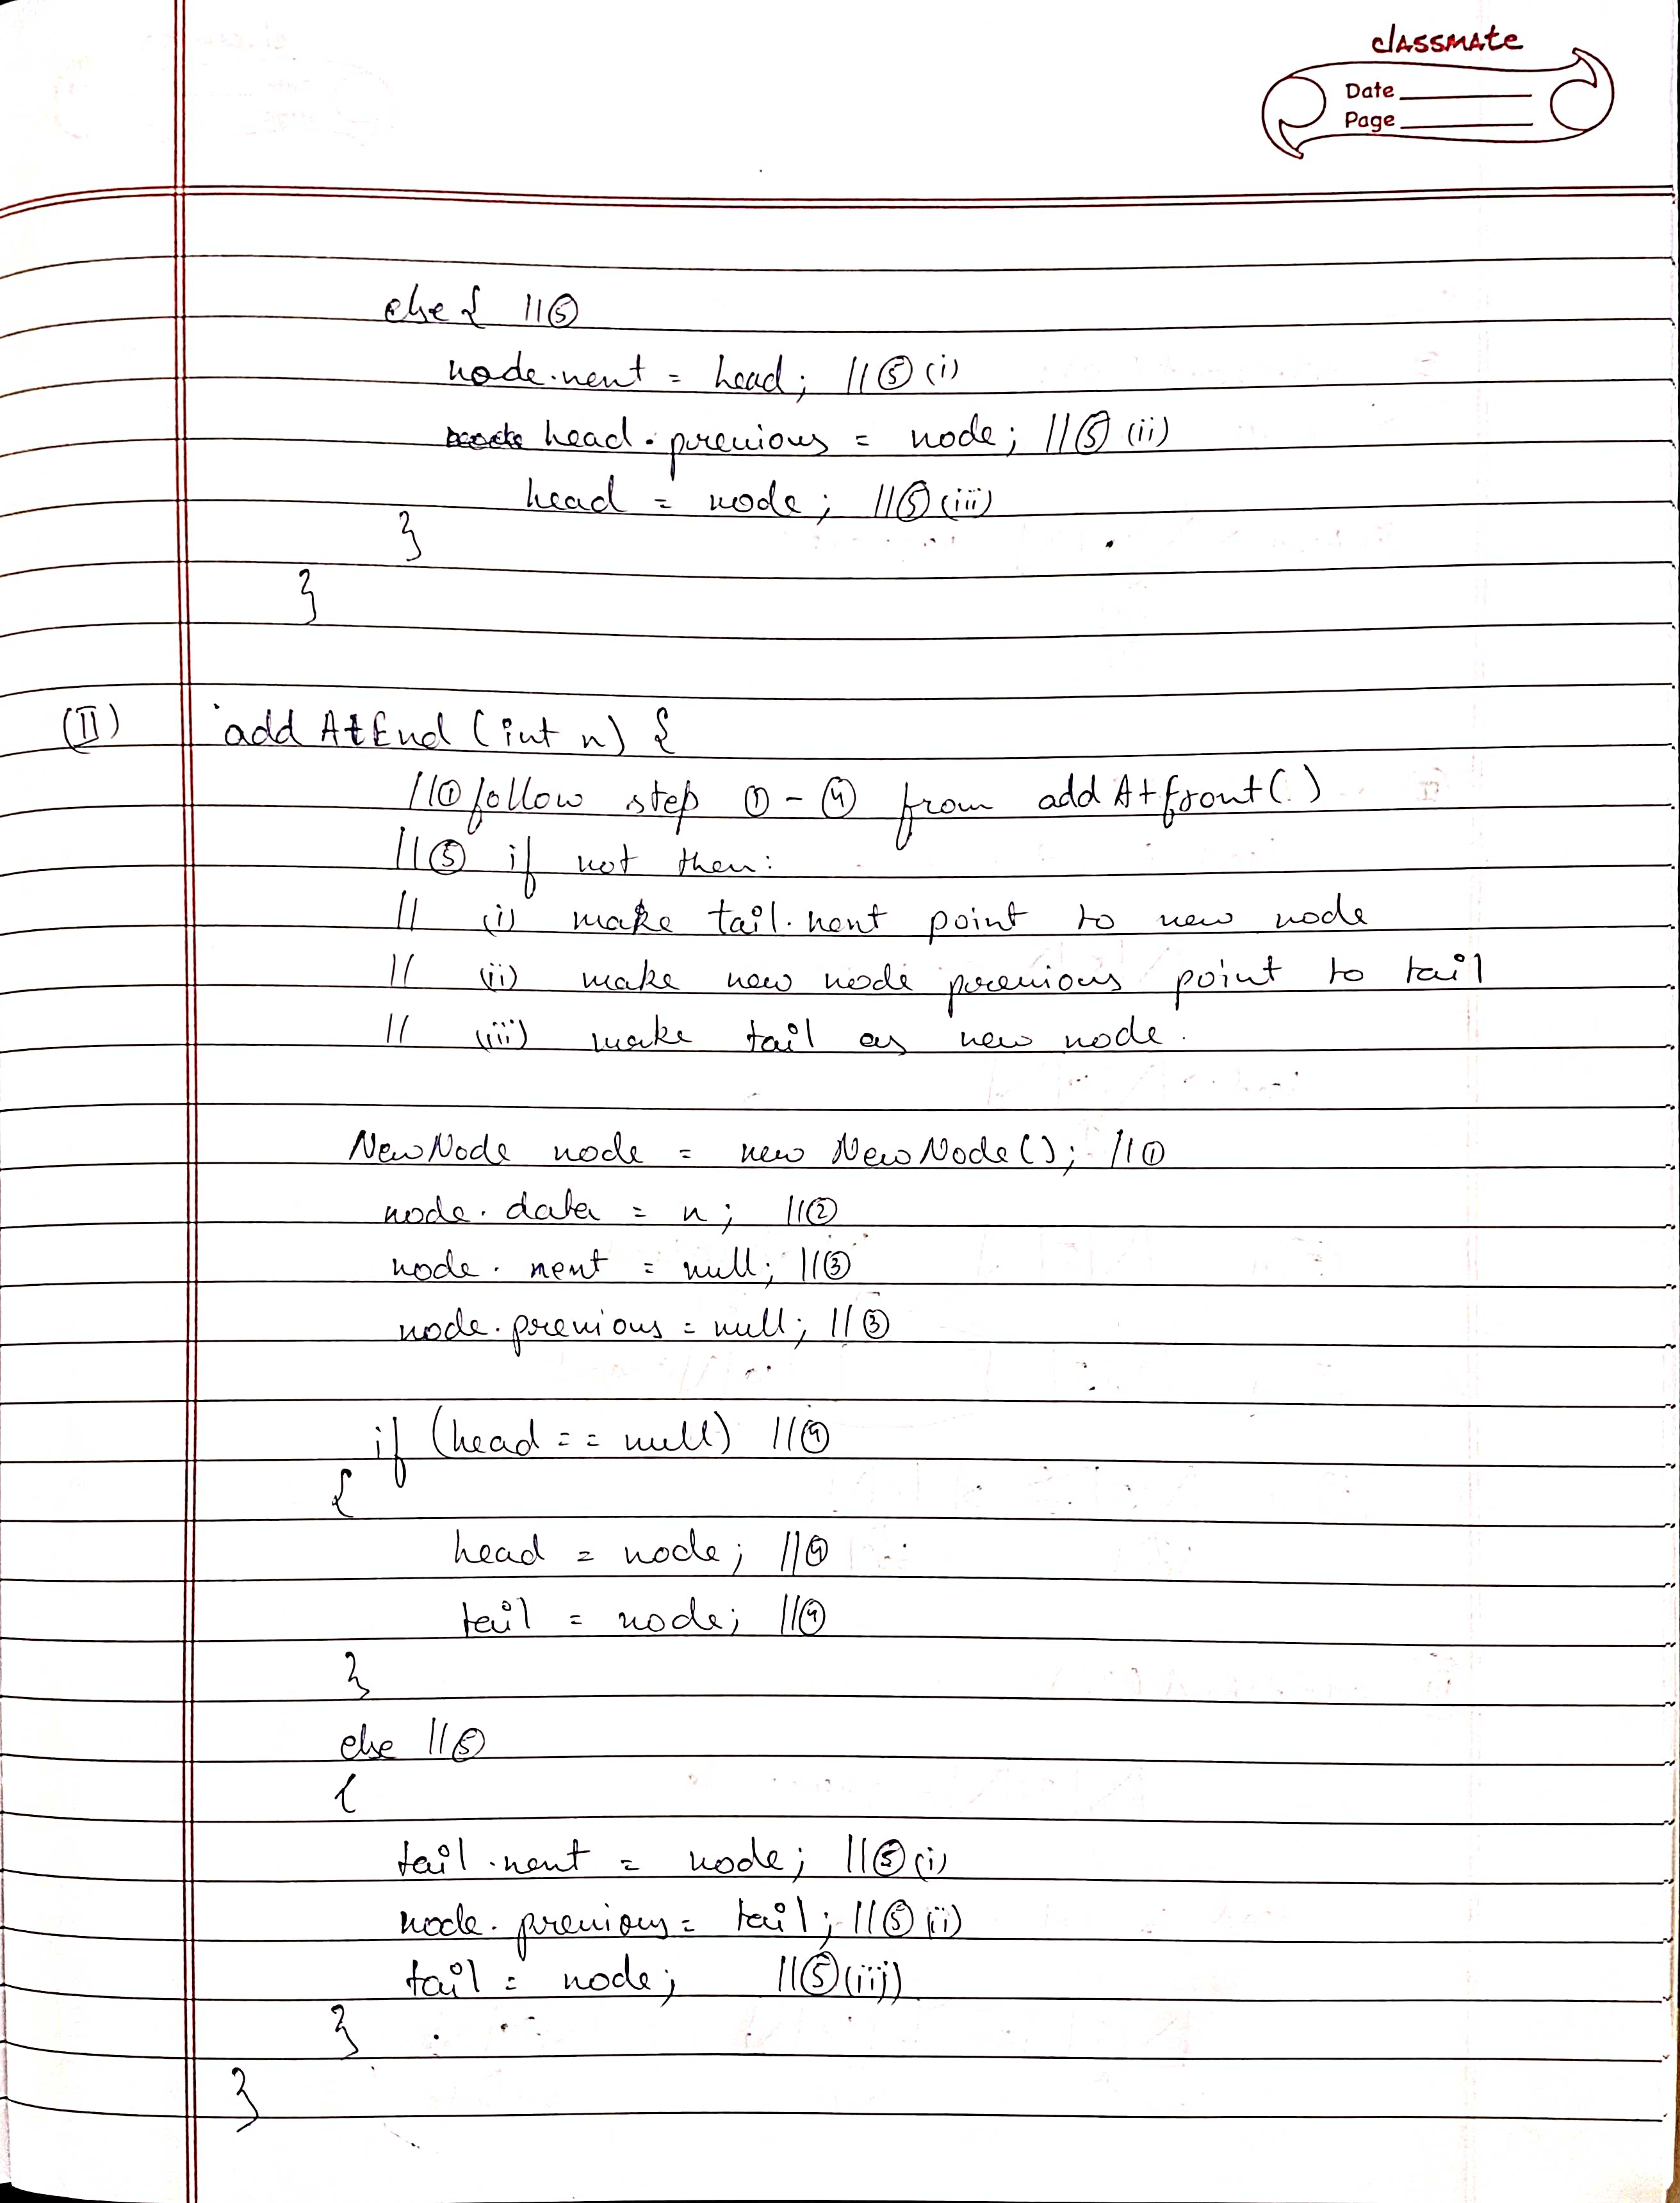 classmate
Date
Page
else { //⑤
node.next = head; //⑤ (i)
head.previous = node; //⑤ (ii)
head = node; //⑤ (iii)
}
}
(II) add AtEnd (int x) {
//① follow step ① - ④ from add At front()
//⑤ if not then:
// (i) make tail.next point to new node
// (ii) make new node previous point to tail
// (iii) make tail as new node.
NewNode node = new NewNode(); //①
node.data = x; //②
node.next = null; //③
node.previous = null; //③
if (head == null) //④
{
head = node; //④
tail = node; //④
}
else //⑤
{
tail.next = node; //⑤ (i)
node.previous = tail; //⑤ (ii)
tail = node; //⑤ (iii)
}
}